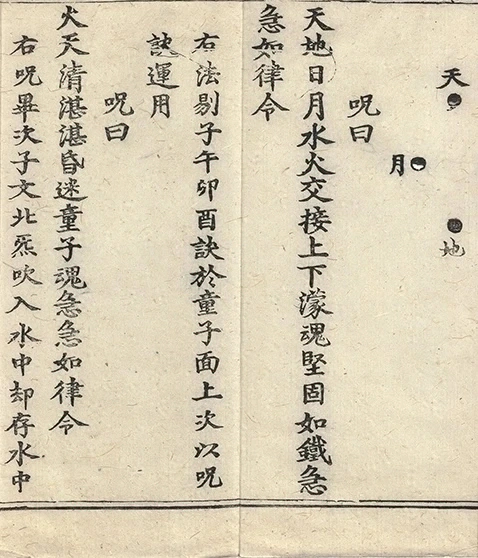 天
月
地
呪曰
天地日月水火交接上下濛魂堅固如鐵急
急如律令
右法剔子午卯酉訣於童子面上次以呪
訣運用
呪曰
火天清湛湛昏迷童子魂急急如律令
右呪畢次子文北炁吹入水中却存水中